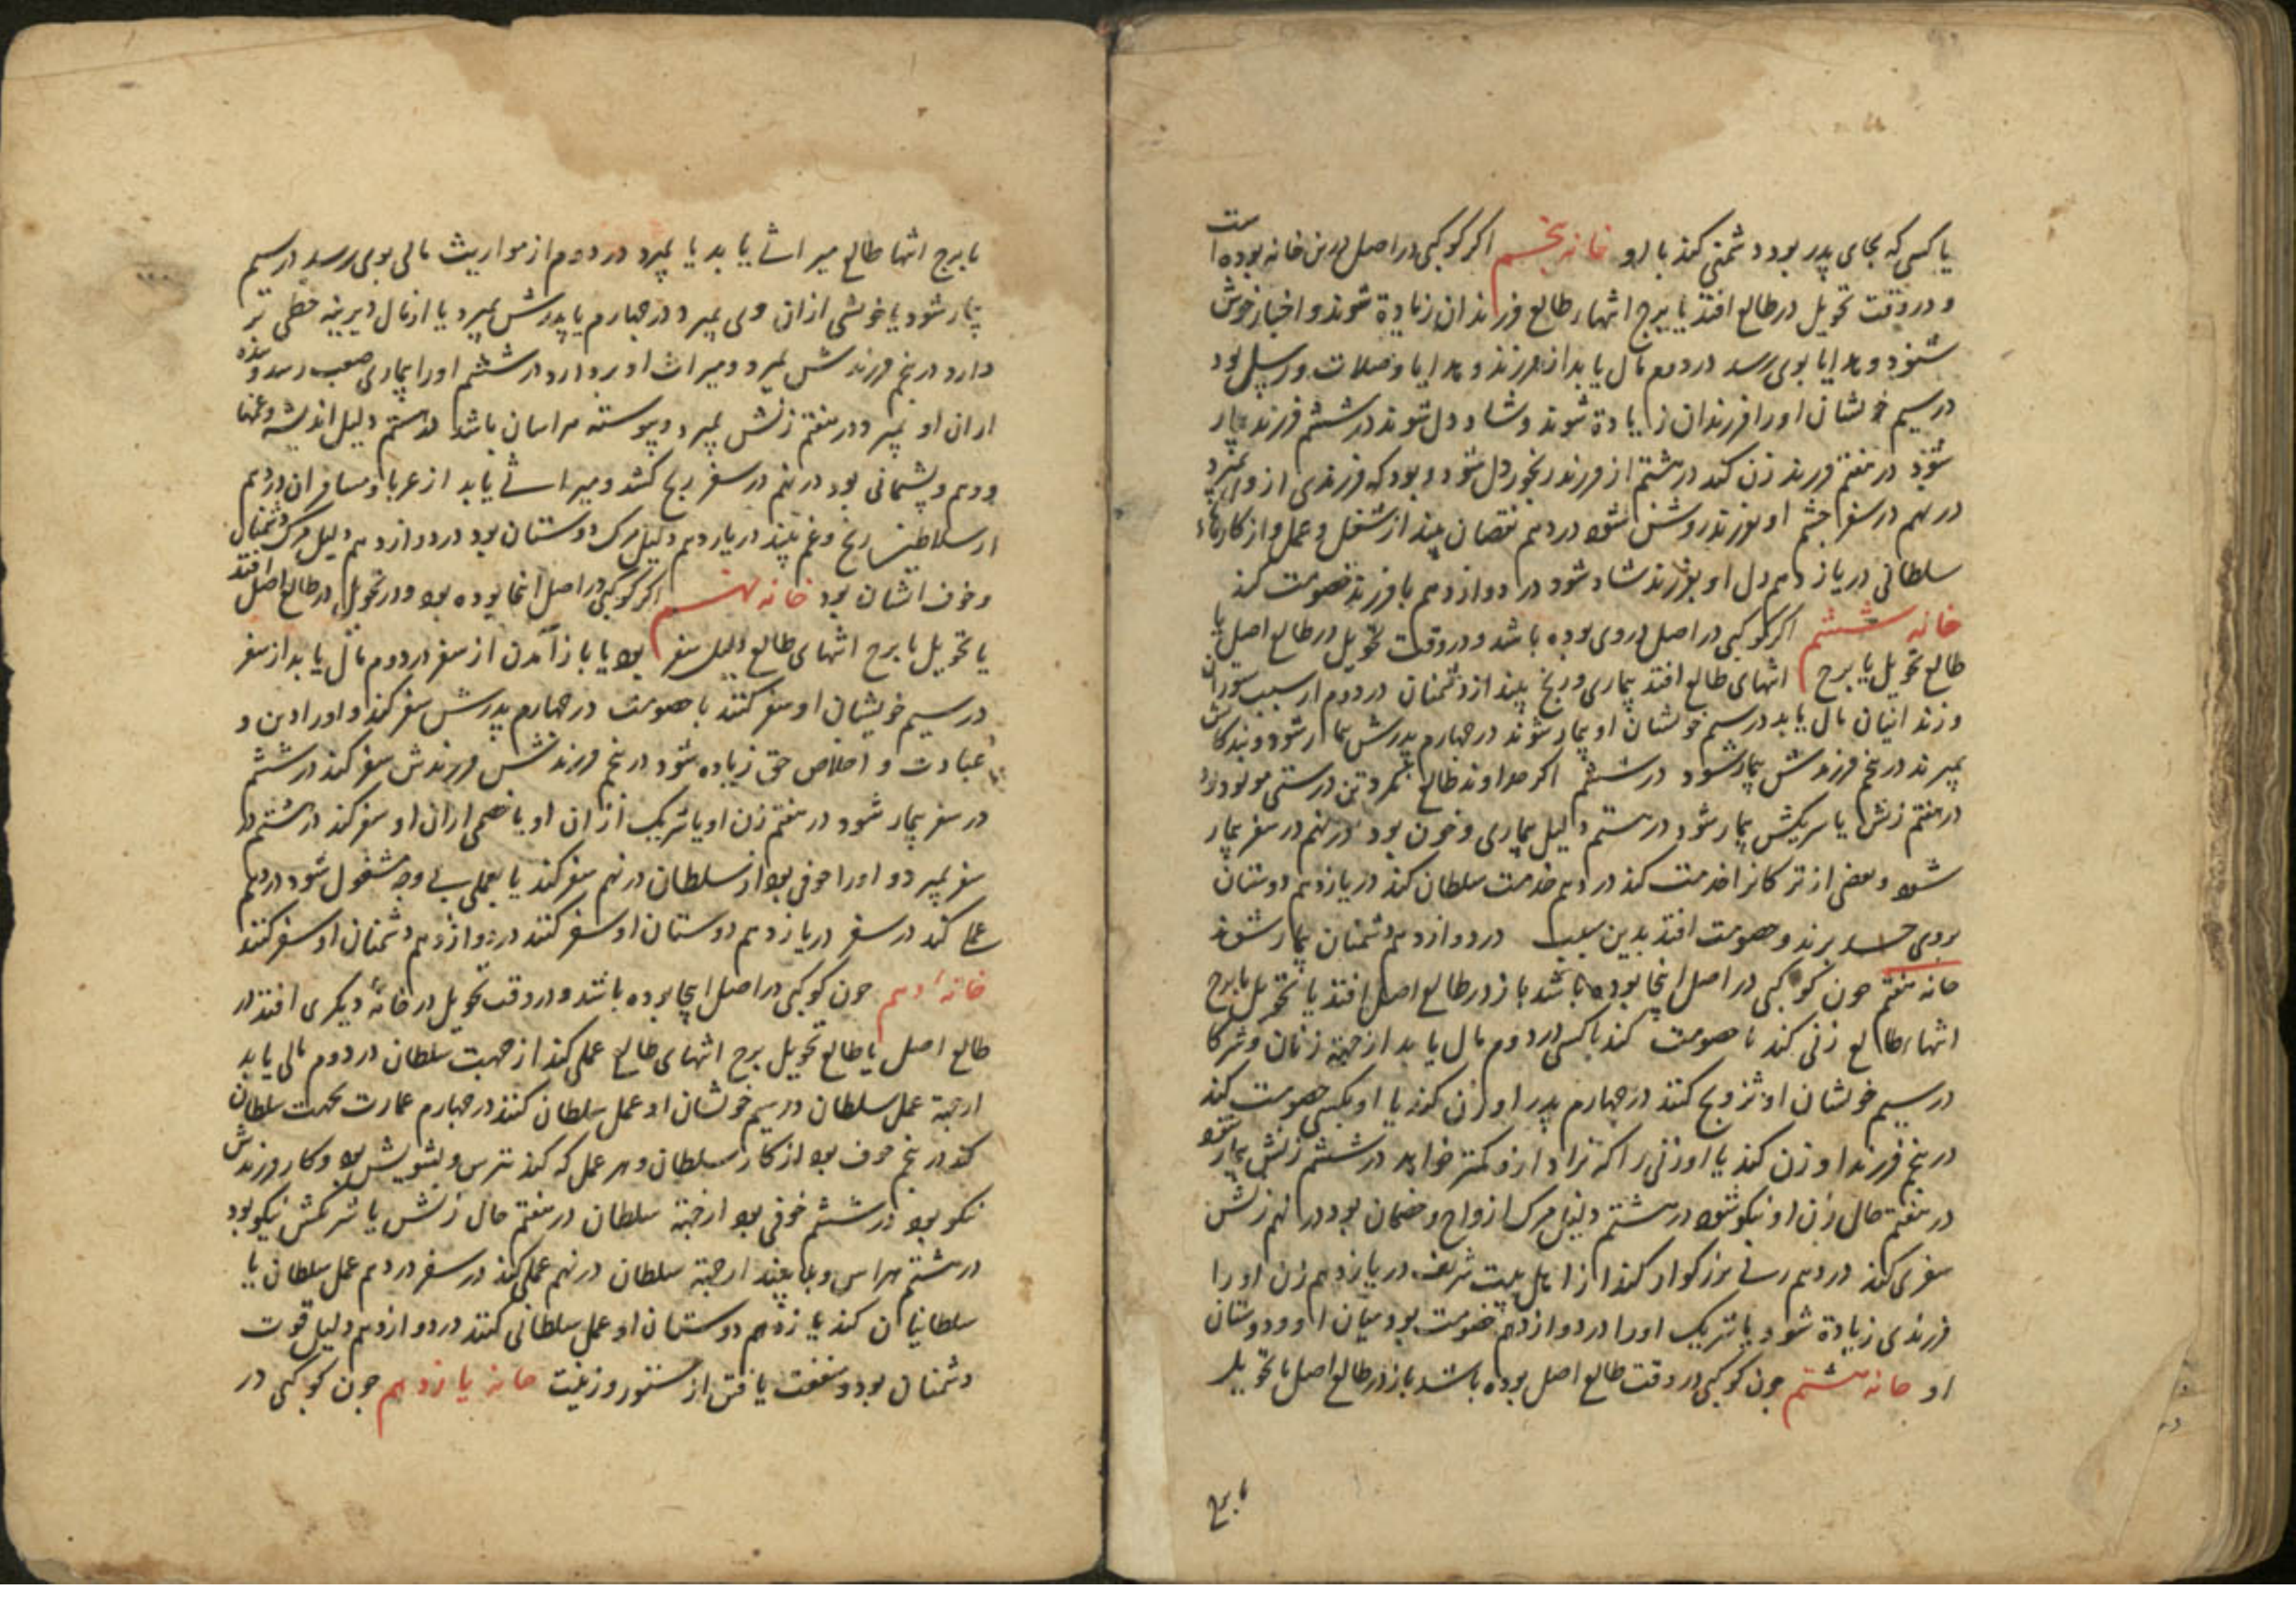 یا کسی که بجای پدر بود دشمنی کند با او خانه پنجم اکر کوکبی در اصل درین خانه بوده است
و در وقت تحویل در طالع افتد یا ببرج انتهاء طالع فرزندان زیادة شوند و اخبار خوش
شنود و هدایا بوی رسد در دوم مال یابد از فرزند و هدایا و صلات و رسایل بود
در سیم خویشان او را فرزندان زیادة شوند و شاد دل شوند در ششم فرزند بیمار
شود در هفتم فرزند زن کند در هشتم از فرزند رنجور دل شود و بود که فرزندی از وی بمیرد
در نهم در سفر چشم او بفرزند روشن شود در دهم نقصان بیند از شغل و عمل و از کارهاء
سلطانی در یازدهم دل او بفرزند شاد شود در دوازدهم با فرزند خصومت کند
خانه ششم اکر کوکبی در اصل در وی بوده باشد و در وقت تحویل در طالع اصل یا
طالع تحویل یا برج انتهای طالع افتد بیماری و رنج بیند از دشمنان در دوم از سبب ستوران
و زندانیان مال یابد در سیم خویشان او بیمار شوند در چهارم پدرش بیمار شود و بندکانش
بمیرند در پنجم فرزندش بیمار شود در ششم اکر خداوند طالع نکرد تن درستی مولود بود
در هفتم زنش یا شریکش بیمار شود در هشتم دلیل بیماری و خون بود در نهم در سفر بیمار
شود و بعضی از ترکانرا خدمت کند در دهم خدمت سلطان کند در یازدهم دوستان
بروی حسد برند و خصومت افتد بدین سبب در دوازدهم دشمنان بیمار شوند
خانه هفتم چون کوکبی در اصل اینجا بوده باشد باز در طالع اصل افتد یا تحویل یا برج
انتهاء طالع زنی کند یا خصومت کند با کسی در دوم مال یابد از جهة زنان و شرکا
در سیم خویشان او تزویج کنند در چهارم پدر او زن کند یا او بکسی خصومت کند
در پنجم فرزند او زن کند یا او زنی را که نزاد از و کمتر خواهد در ششم زنش بیمار شود
در هفتم حال زن او نیکو شود در هشتم دلیل مرک ازواج و خصمان بود در نهم زنش
سفری کند در دهم زنی بزرکوار کند از اهل بیت شریف در یازدهم زن او را
فرزندی زیادة شود یا شریک او را در دوازدهم خصومت بود میان او و دوستان
او خانه هشتم چون کوکبی در وقت طالع اصل بوده باشد باز در طالع اصل یا تحویل
یا برج
یا برج انتها طالع میراثی یابد یا بمیرد در دوم از مواریث مالی بوی رسد در سیم
بیمار شود یا خویشی ازان وی بمیرد و در چهارم یا پدرش بمیرد یا از مال دیرینه حظی بر
دارد در پنجم فرزندش بمیرد و میراث او بردارد در ششم او را بیماری صعب رسد و بنده
ازان او بمیرد و در هفتم زنش بمیرد و پیوسته هراسان باشد در هشتم دلیل اندیشه و غمها
و وهم و پشیمانی بود در نهم در سفر رنج کشد و میراثی یابد از غربا و مسافران در دهم
از سلاطین رنج و غم بیند در یازدهم دلیل مرک دوستان بود در دوازدهم دلیل مرک دشمنان
و خوف ایشان بود خانه نهم اکر کوکبی در اصل انجا بوده بود و در تحویل در طالع اصل افتد
یا تحویل یا برج انتهای طالع دلیل سفر بود یا باز آمدن از سفر در دوم مال یابد از سفر
در سیم خویشان او سفر کنند یا خصومت در چهارم پدرش سفر کند و او را دین و
عبادت و اخلاص حق زیاده شود در پنجم فرزندش سفر کند در ششم
در سفر بیمار شود در هفتم زن او یا شریک ازان او یا خصمی ازان او سفر کند در هشتم در
سفر بمیرد و او را خوفی بود از سلطان در نهم سفر کند یا بعملی بی وجه مشغول شود در دهم
عملها کند در سفر در یازدهم دوستان او سفر کنند در دوازدهم دشمنان او سفر کنند
خانه دهم چون کوکبی در اصل اینجا بوده باشد و در وقت تحویل در خانه دیکری افتد در
طالع اصل یا طالع تحویل برج انتهای طالع عملی کند از جهت سلطان در دوم مالی یابد
از جهة عمل سلطان در سیم خویشان او عمل سلطان کنند در چهارم عمارت بجهت سلطان
کند در پنجم خوف بود از کار سلطان و هر عمل که کند بترس و بتشویش بود و کار فرزندش
نیکو بود در ششم خوفی بود از جهة سلطان در هفتم حال زنش یا شریکش نیکو بود
در هشتم هراس و بلا بیند از جهة سلطان در نهم عملی کند در سفر در دهم عمل سلطان یا
سلطانیان کند یازدهم دوستان او عمل سلطانی کنند در دوازدهم دلیل قوت
دشمنان بود و منفعت یافتن از ستور و زینت خانه یازدهم چون کوکبی در